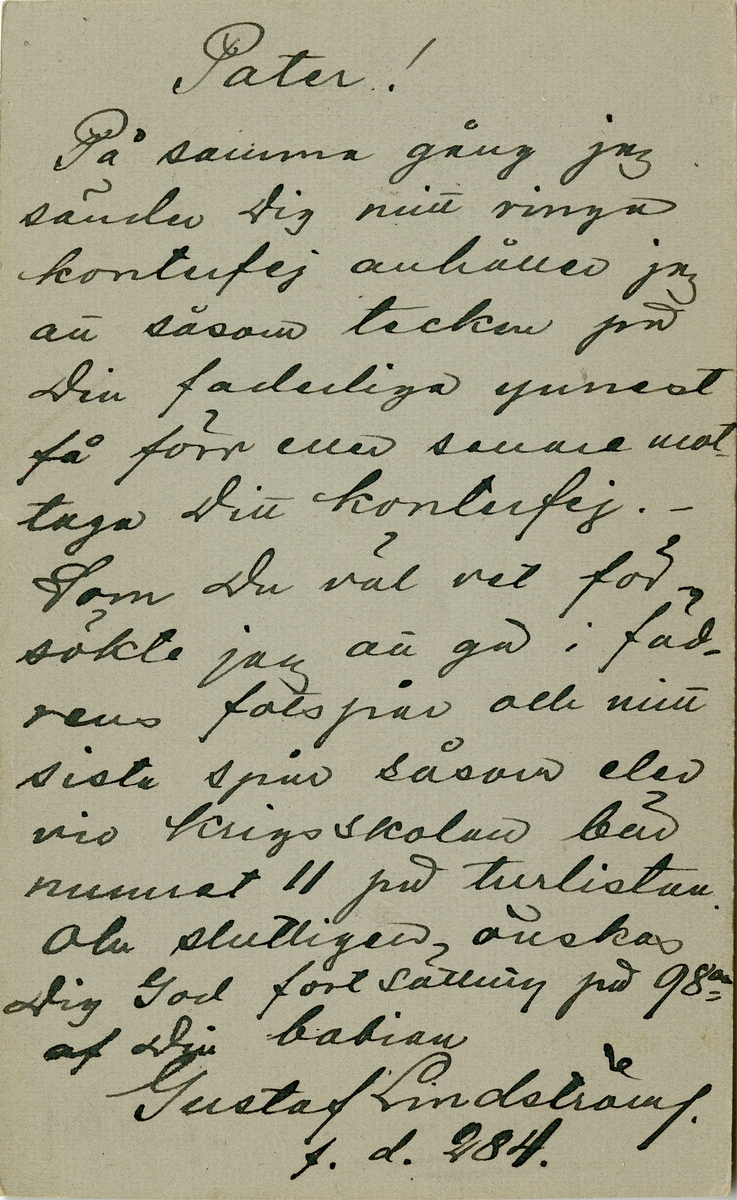 Pater!
På samma gång jag
sänder Dig mitt ringa
konterfej anhåller jag
att såsom tecken på
Din faderliga ynnest
få förr eller senare mot-
taga Ditt konterfej. –
Som Du väl vet för-
sökte jag att gå i fäd-
rens fotspår och mitt
sista spår såsom elev
vid Krigsskolan bär
numret 11 på turlistan.
Och slutligen önskas
Dig God fortsättning på 98an
af Din babian
Gustaf Lindström.
f. d. 284.